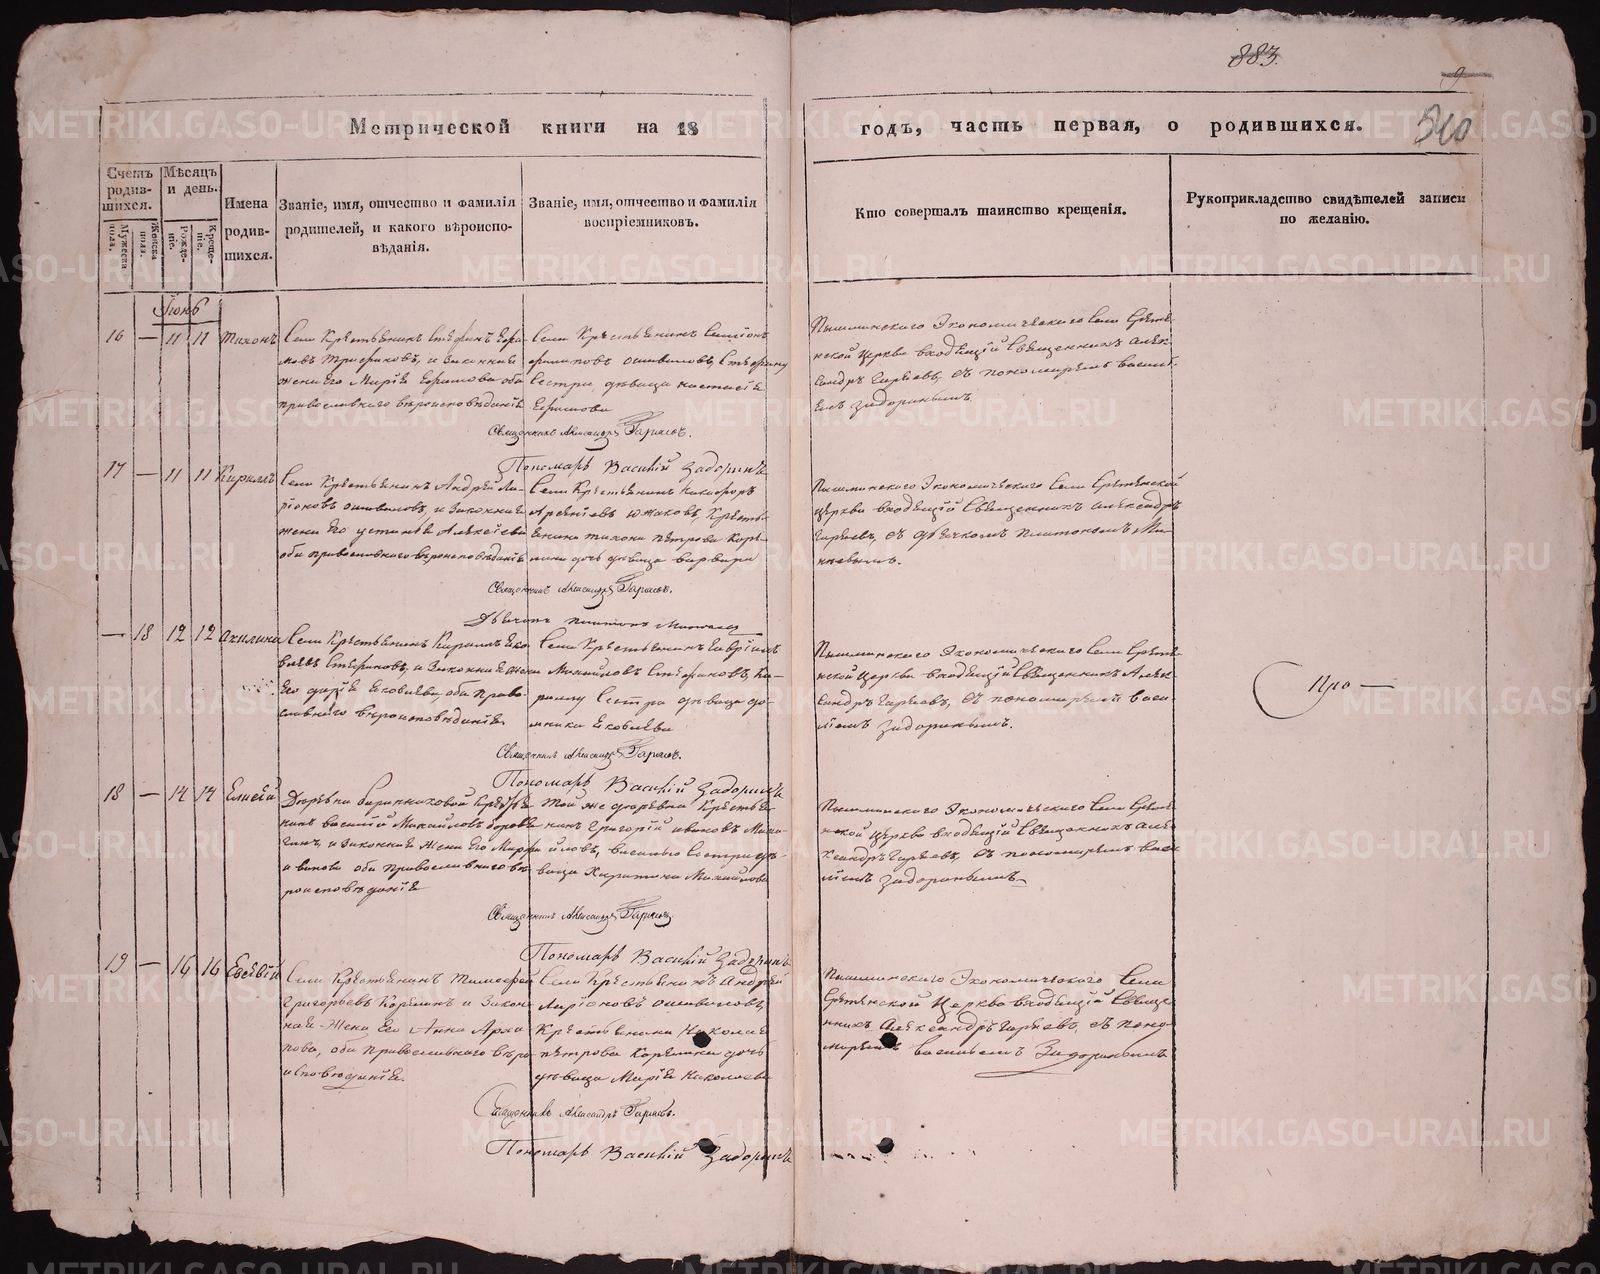 883.
9
Метрической книги на 18
годъ, часть первая, о родившихся.
340
Счетъ родив-шихся.
Мѣсяцъ и день.
Мужеска пола.
Женска пола.
Рожде-ніе.
Креще-ніе.
Имена родив-шихся.
Званіе, имя, отчество и фамилія
родителей, и какого вѣроиспо-
вѣданія.
Званіе, имя, отчество и фамилія
воспріемниковъ.
Кто совершалъ таинство крещенія.
Рукоприкладство свидѣтелей записи
по желанію.
Іюнь
16 — 11 11 Тихонъ
Села Крестьянинъ
и законная
жена его Марія Ефимова оба
православнаго вѣроисповѣданія
Села Крестьянинъ
сестра дѣвица
Ефимова
Пышминскаго Экономическаго села Срѣте-
нской церкви входящій Священникъ Алек-
сандръ Гаряевъ, съ пономаремъ Васил-
емъ Задоринымъ
Священникъ Александръ Гаряевъ.
Пономарь Василій Задоринъ
17 — 11 11 Кириллъ
Села Крестьянинъ Андрей Ла-
ріоновъ и законная
жена его Устинья Алексѣева
оба православнаго вѣроисповѣданія
Села Крестьянинъ Никифоръ
Южаковъ, Кресть-
янина Тихона Петрова Коре-
лина дочь дѣвица Варвара
Пышминскаго Экономическаго села Срѣтенской
церкви входящій Священникъ Александръ
Гаряевъ, съ дьячкомъ Платономъ Ми-
Священникъ Александръ Гаряевъ.
Дьячокъ Платонъ
— 18 12 12 Акилина
Села Крестьянинъ Кириллъ Яко-
влевъ и законная жена
его Дарія Яковлева оба право-
славнаго вѣроисповѣданія
Села Крестьянинъ Гавріилъ
Михайловъ Ки-
риллу сестра дѣвица До-
мника Яковлева
Пышминскаго Экономическаго села Срѣте-
нской церкви входящій Священникъ Алек-
сандръ Гаряевъ, съ пономаремъ Васи-
ліемъ Задоринымъ.
Про —
Священникъ Александръ Гаряевъ.
Пономарь Василій Задоринъ
18 — 14 14 Елисей
Деревни Крестья-
нинъ Василій Михайловъ
и законная жена его Марфа
Иванова оба православнаго вѣ-
роисповѣданія
Той же деревни Крестья-
нинъ Григорій Ивановъ Миха-
йловъ, Василью сестра дѣ-
вица Харитина Михайлова
Пышминскаго Экономическаго села Срѣте-
нской церкви входящій Священникъ Але-
ксандръ Гаряевъ, съ пономаремъ Васи-
ліемъ Задоринымъ
Священникъ Александръ Гаряевъ
Пономарь Василій Задоринъ
19 — 16 16 Евсевій
Села Крестьянинъ Тимофей
Григорьевъ Корелинъ и закон-
ная жена его Анна Архи-
пова, оба православнаго вѣро-
исповѣданія
Села Крестьянинъ Андрей
Ларіоновъ
Крестьянина Николая
Петрова Корелина дочь
дѣвица Марія Николаева
Пышминскаго Экономическаго села
Срѣтенской церкви входящій Священ-
никъ Александръ Гаряевъ, съ поно-
маремъ Васильемъ Задоринымъ
Священникъ Александръ Гаряевъ.
Пономарь Василій Задоринъ
METRIKI.GASO-URAL.RU